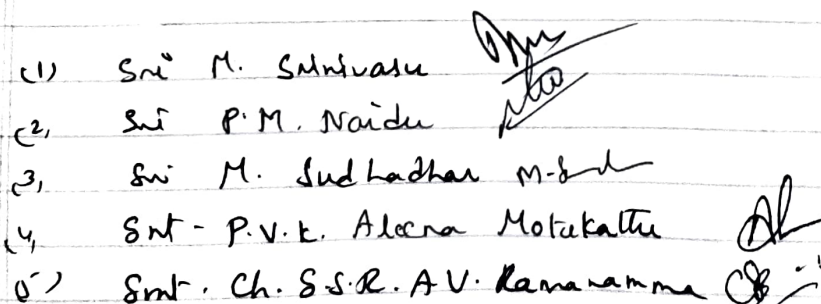 (1) Sri M. Srinivasu
(2) Sri P.M. Naidu
(3) Sri M. Sudhadhar
(4) Smt - P.V.K. Aleena Motukattu
(5) Smt. Ch. S.S.R.A.V. Ramanamma